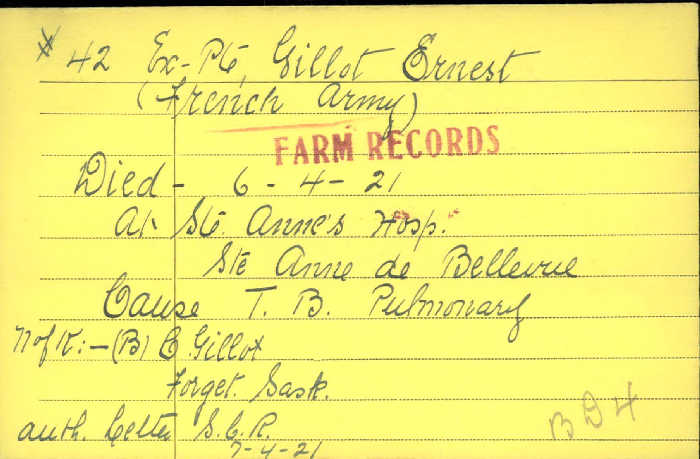 # 42 Ex-Pte, Gillot Ernest
(French Army)
FARM RECORDS
Died - 6 - 4 - 21
At Ste. Anne's Hosp.
Ste Anne de Bellevue
Cause T. B. Pulmonary
N of K:- (B) E. Gillot
Forget. Sask.
auth. Letter S.C.R.
7-4-21
BD4